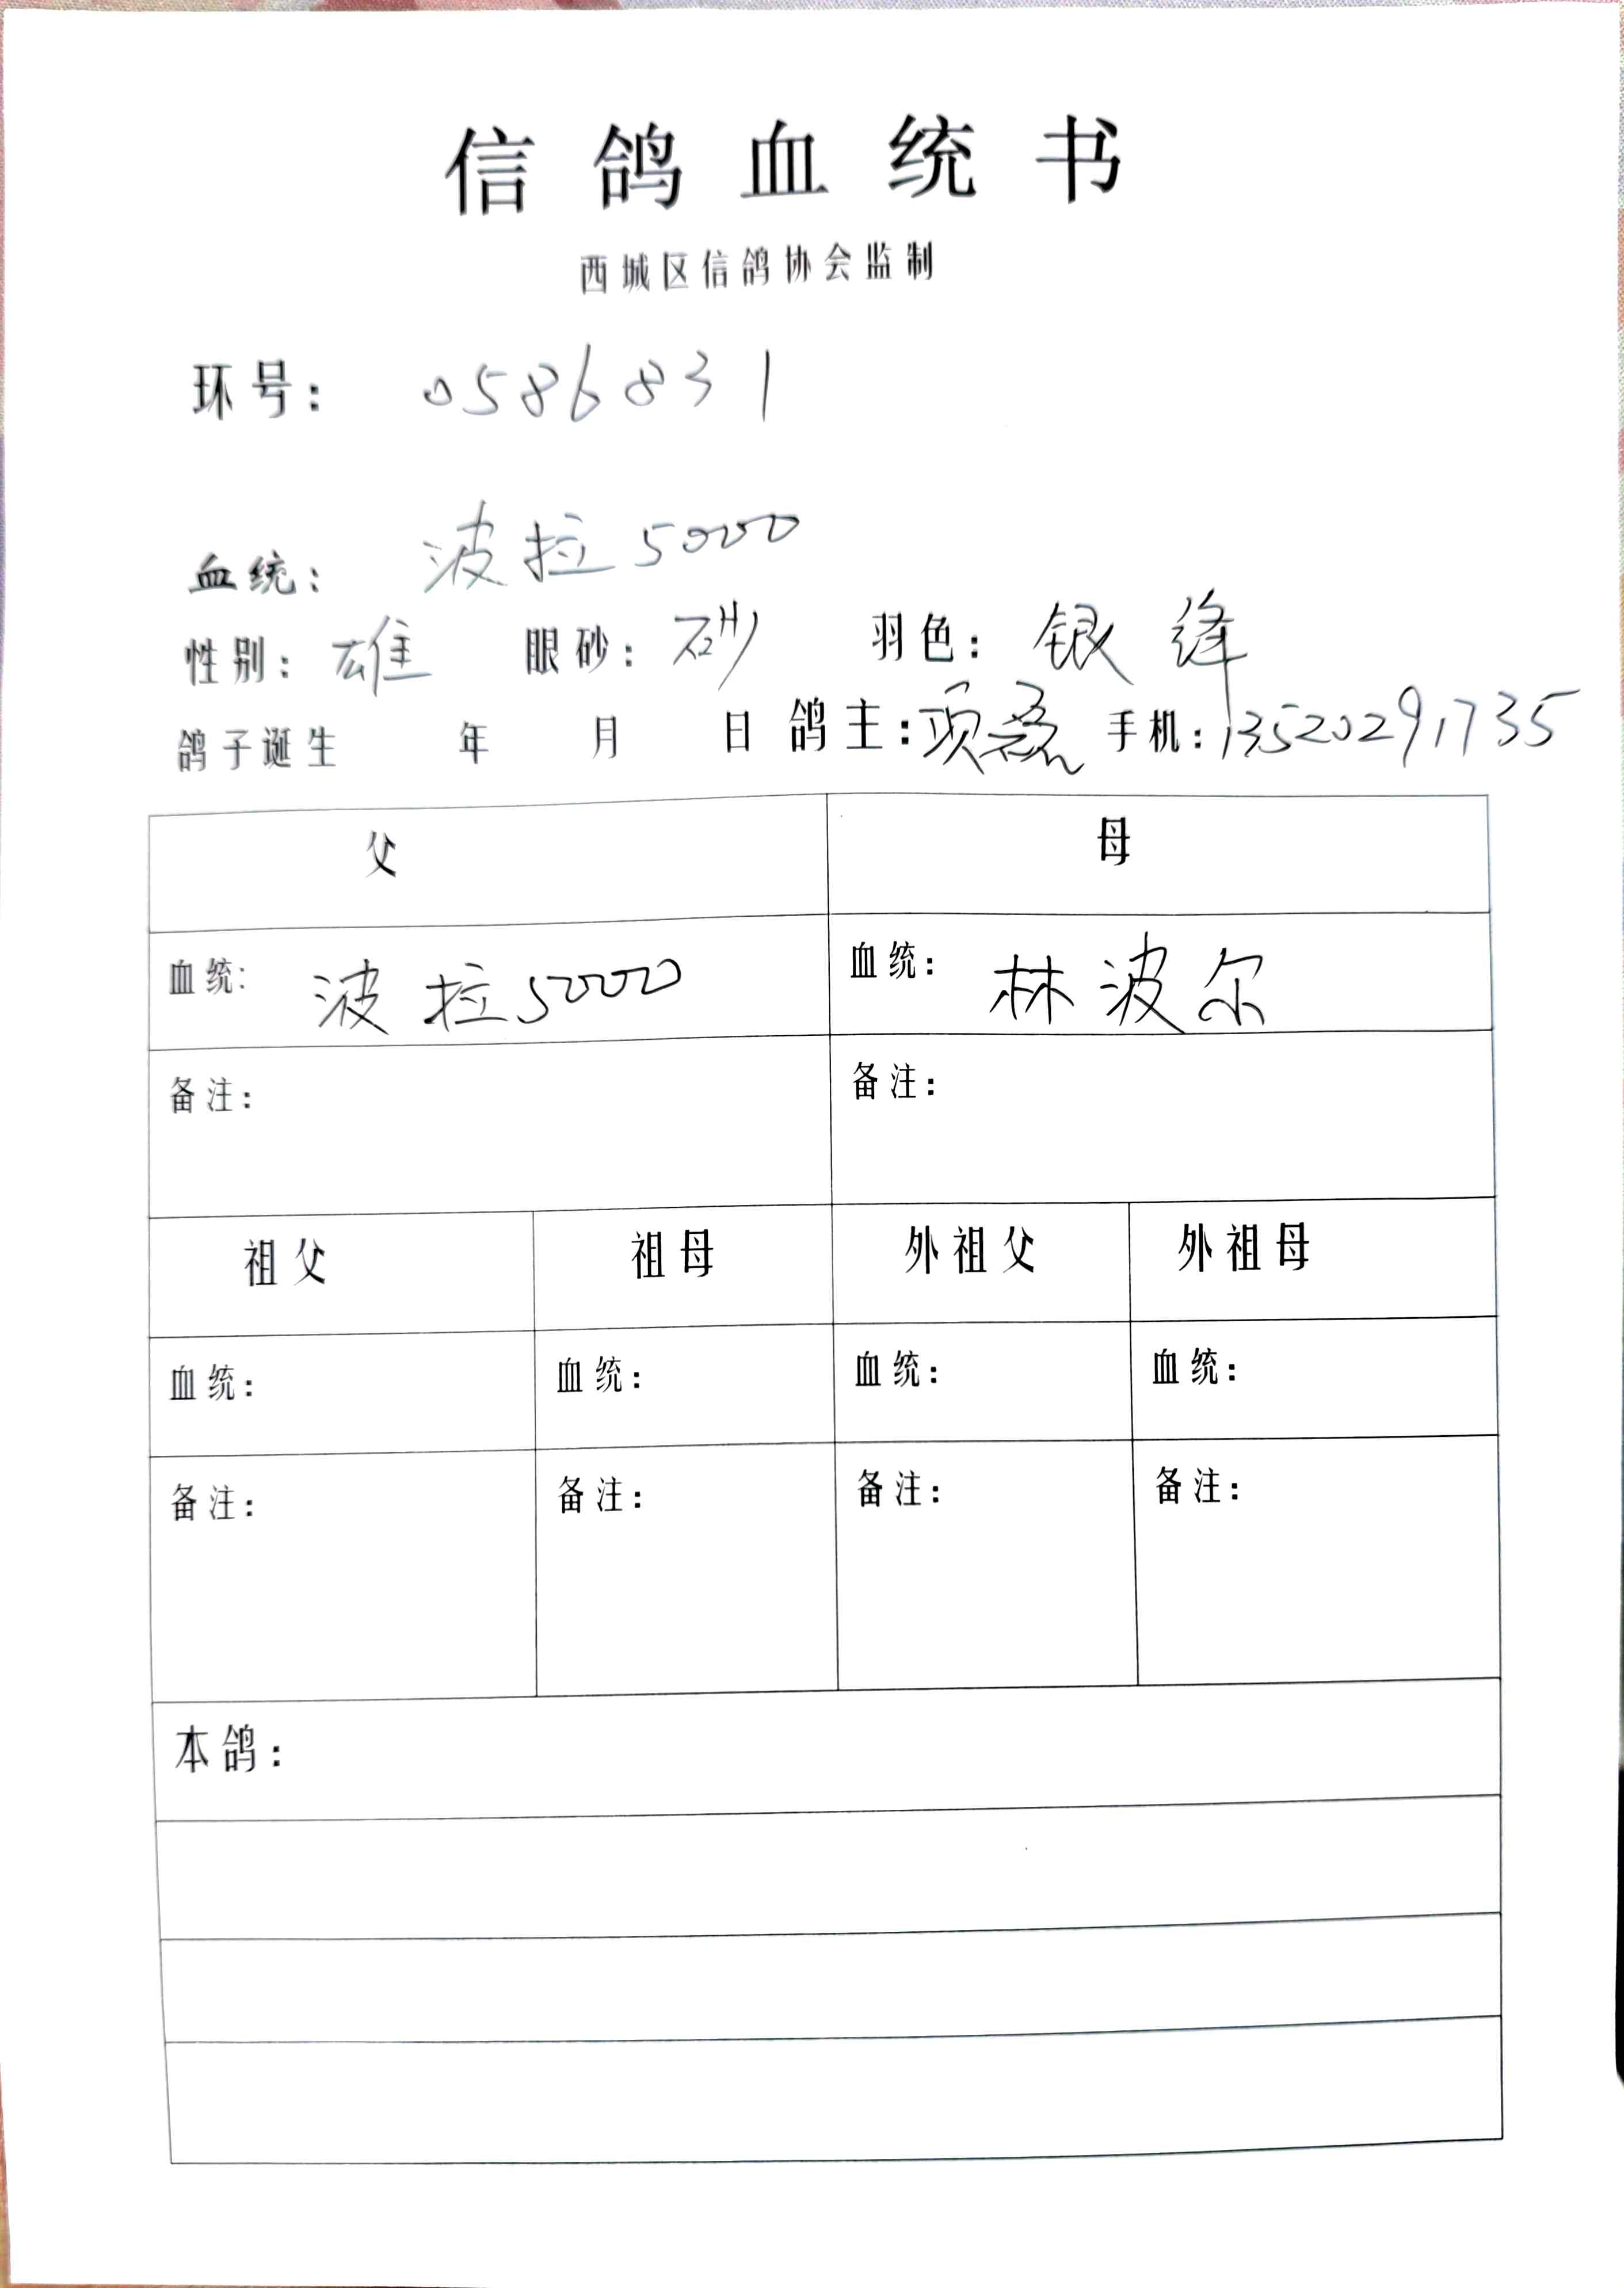 信鸽血统书
西城区信鸽协会监制
环号： 0586831
血统： 波拉5000
性别：雄 眼砂：砂 羽色：银绛
鸽子诞生 年 月 日 鸽主：项磊 手机：13520291735
父 母
血统： 波拉5000 血统： 林波尔
备注： 备注：
祖父 祖母 外祖父 外祖母
血统： 血统： 血统： 血统：
备注： 备注： 备注： 备注：
本鸽：